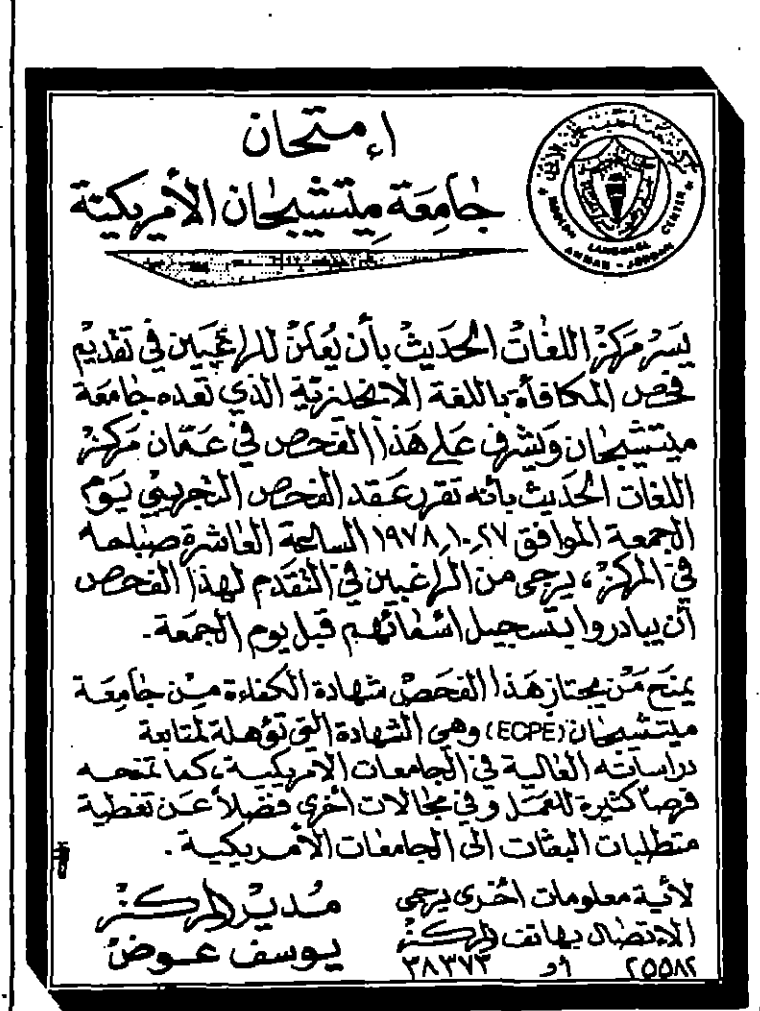 إمتحان
جامعة ميتشيجان الأمريكية
MODERN LANGUAGE CENTER
AMMAN - JORDAN
يسر مركز اللغات الحديث بأن يعلن للراغبين في تقديم
فحص المكافأة باللغة الانجليزية الذي تعده جامعة
ميتشيجان ويشرف على هذا الفحص في عمّان مركز
اللغات الحديث بأنه تقرر عقد الفحص التجريبي يوم
الجمعة الموافق ٢٧ـ١٠ـ١٩٧٨ الساعة العاشرة صباحا
في المركز، يرجى من الراغبين في التقدم لهذا الفحص
أن يبادروا بتسجيل اسمائهم قبل يوم الجمعة.
يمنح من يجتاز هذا الفحص شهادة الكفاءة من جامعة
ميتشيجان (ECPE) وهي الشهادة التي تؤهلة لمتابعة
دراساته العالية في الجامعات الامريكية، كما تمنحه
فرصاً كثيرة للعمل وفي مجالات أخرى فضلاً عن تغطية
متطلبات البعثات الى الجامعات الأمريكية.
لأية معلومات اخرى يرجى
الاتصال بهاتف المركز
٢٥٥٨٢ أو ٣٨٣٧٣
مدير المركز
يوسف عوض